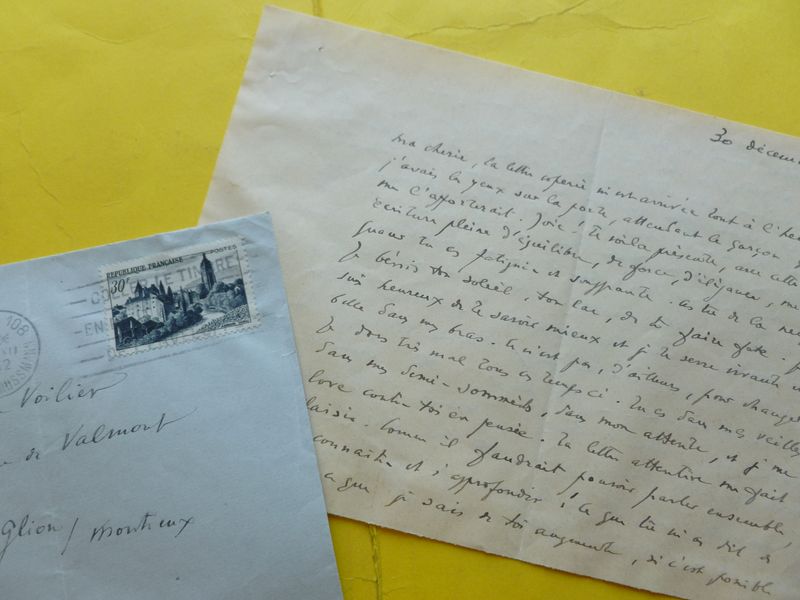 30 décem
Ma chérie, la lettre espérée m'est arrivée tout à l'heu
j'avais les yeux sur la porte, attendant le garçon
me l'apporterait. Joie! Te voilà présente, avec cette
écriture pleine d'équilibre, de force, d'élégance, même
quand tu es fatiguée et souffrante. As-tu de la nei
Je bénis ton soleil, ton lac, de te faire fête. J
suis heureux de te savoir mieux et je te serre vivante
belle dans mes bras. Ce n'est pas, d'ailleurs, pour change
Je dors très mal tous ces temps ci. Tu es dans mes veilles
dans mes demi-sommeils, dans mon attente, et je me
love contre toi en pensée. Ta lettre attentive me fait
laisir. Comme il faudrait pouvoir parler ensemble,
connaître et s'approfondir! Ce que tu m'as dit de
ce que je sais de toi augmente, si c'est possible
POSTES
REPUBLIQUE FRANÇAISE
30F
108
XII
Voilier
de Valmont
Glion / Montreux